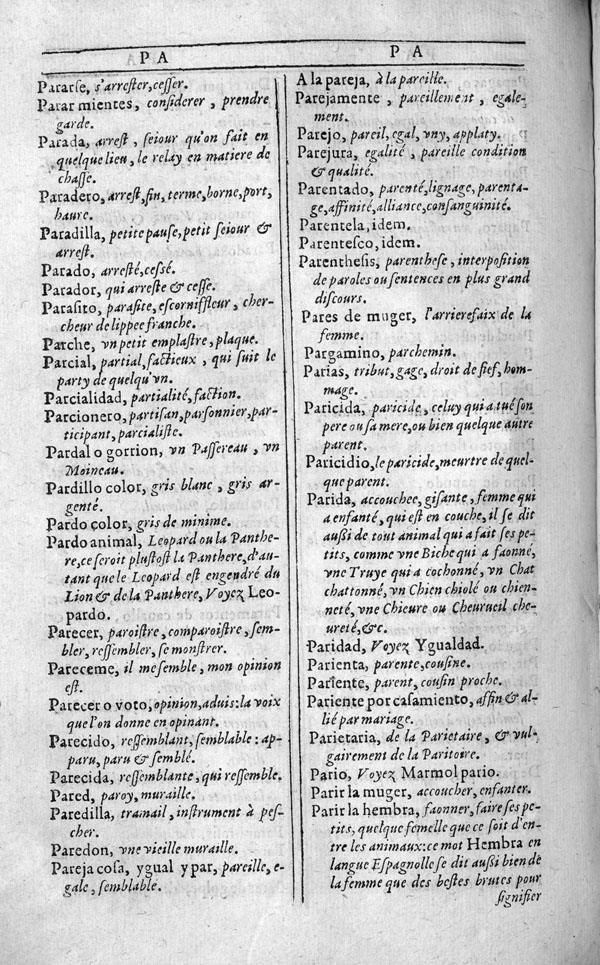 P A
Pararse, s'arrester, cesser.
Parar mientes, considerer, prendre
garde.
Parada, arrest, seiour qu'on fait en
quelque lieu, le relay en matiere de
chasse.
Paradero, arrest, fin, terme, borne, port,
haure.
Paradilla, petite pause, petit seiour &
arrest.
Parado, arresté, cessé.
Parador, qui arreste & cesse.
Parasito, parasite, escornifleur, cher-
cheur de lippee franche.
Parche, vn petit emplastre, plaque.
Parcial, partial, factieux, qui suit le
party de quelqu'vn.
Parcialidad, partialité, faction.
Parcionero, partisan, parsonnier, par-
ticipant, parcialiste.
Pardal o gorrion, vn Passereau, vn
Moineau.
Pardillo color, gris blanc, gris ar-
genté.
Pardo color, gris de minime.
Pardo animal, Leopard ou la Panthe-
re, ce seroit plustost la Panthere, d'au-
tant que le Leopard est engendré du
Lion & de la Panthere, Voyez Leo-
pardo.
Parecer, paroistre, comparoistre, sem-
bler, ressembler, se monstrer.
Pareceme, il me semble, mon opinion
est.
Parecer o voto, opinion, aduis: la voix
que l'on donne en opinant.
Parecido, ressemblant, semblable: ap-
paru, paru & semblé.
Parecida, ressemblante, qui ressemble.
Pared, paroy, muraille.
Paredilla, tramail, instrument à pes-
cher.
Paredon, vne vieille muraille.
Pareja cosa, ygual y par, pareille, e-
gale, semblable.
P A
A la pareja, à la pareille.
Parejamente, pareillement, egale-
ment.
Parejo, pareil, egal, vny, applaty.
Parejura, egalité, pareille condition
& qualité.
Parentado, parenté, lignage, parenta-
ge, affinité, alliance, consanguinité.
Parentela, idem.
Parentesco, idem.
Parenthesis, parenthese, interposition
de paroles ou sentences en plus grand
discours.
Pares de muger, l'arrierefaix de la
femme.
Pargamino, parchemin.
Parias, tribut, gage, droit de fief, hom-
mage.
Paricida, paricide, celuy qui a tué son
pere ou sa mere, ou bien quelque autre
parent.
Paricidio, le paricide, meurtre de quel-
que parent.
Parida, accouchee, gisante, femme qui
a enfanté, qui est en couche, il se dit
aussi de tout animal qui a fait ses pe-
tits, comme vne Biche qui a faonné,
vne Truye qui a cochonné, vn Chat
chattonné, vn Chien chiolé ou chien-
neté, vne Chieure ou Cheurueil che-
ureté, &c.
Paridad, Voyez Ygualdad.
Parienta, parente, cousine.
Pariente, parent, cousin proche.
Pariente por casamiento, affin & al-
lié par mariage.
Parietaria, de la Parietaire, & vul-
gairement de la Paritoire.
Pario, Voyez Marmol pario.
Parir la muger, accoucher, enfanter.
Parir la hembra, faonner, faire ses pe-
tits, quelque femelle que ce soit d'en-
tre les animaux: ce mot Hembra en
langue Espagnolle se dit aussi bien dē
la femme que des bestes brutes pour
signifier